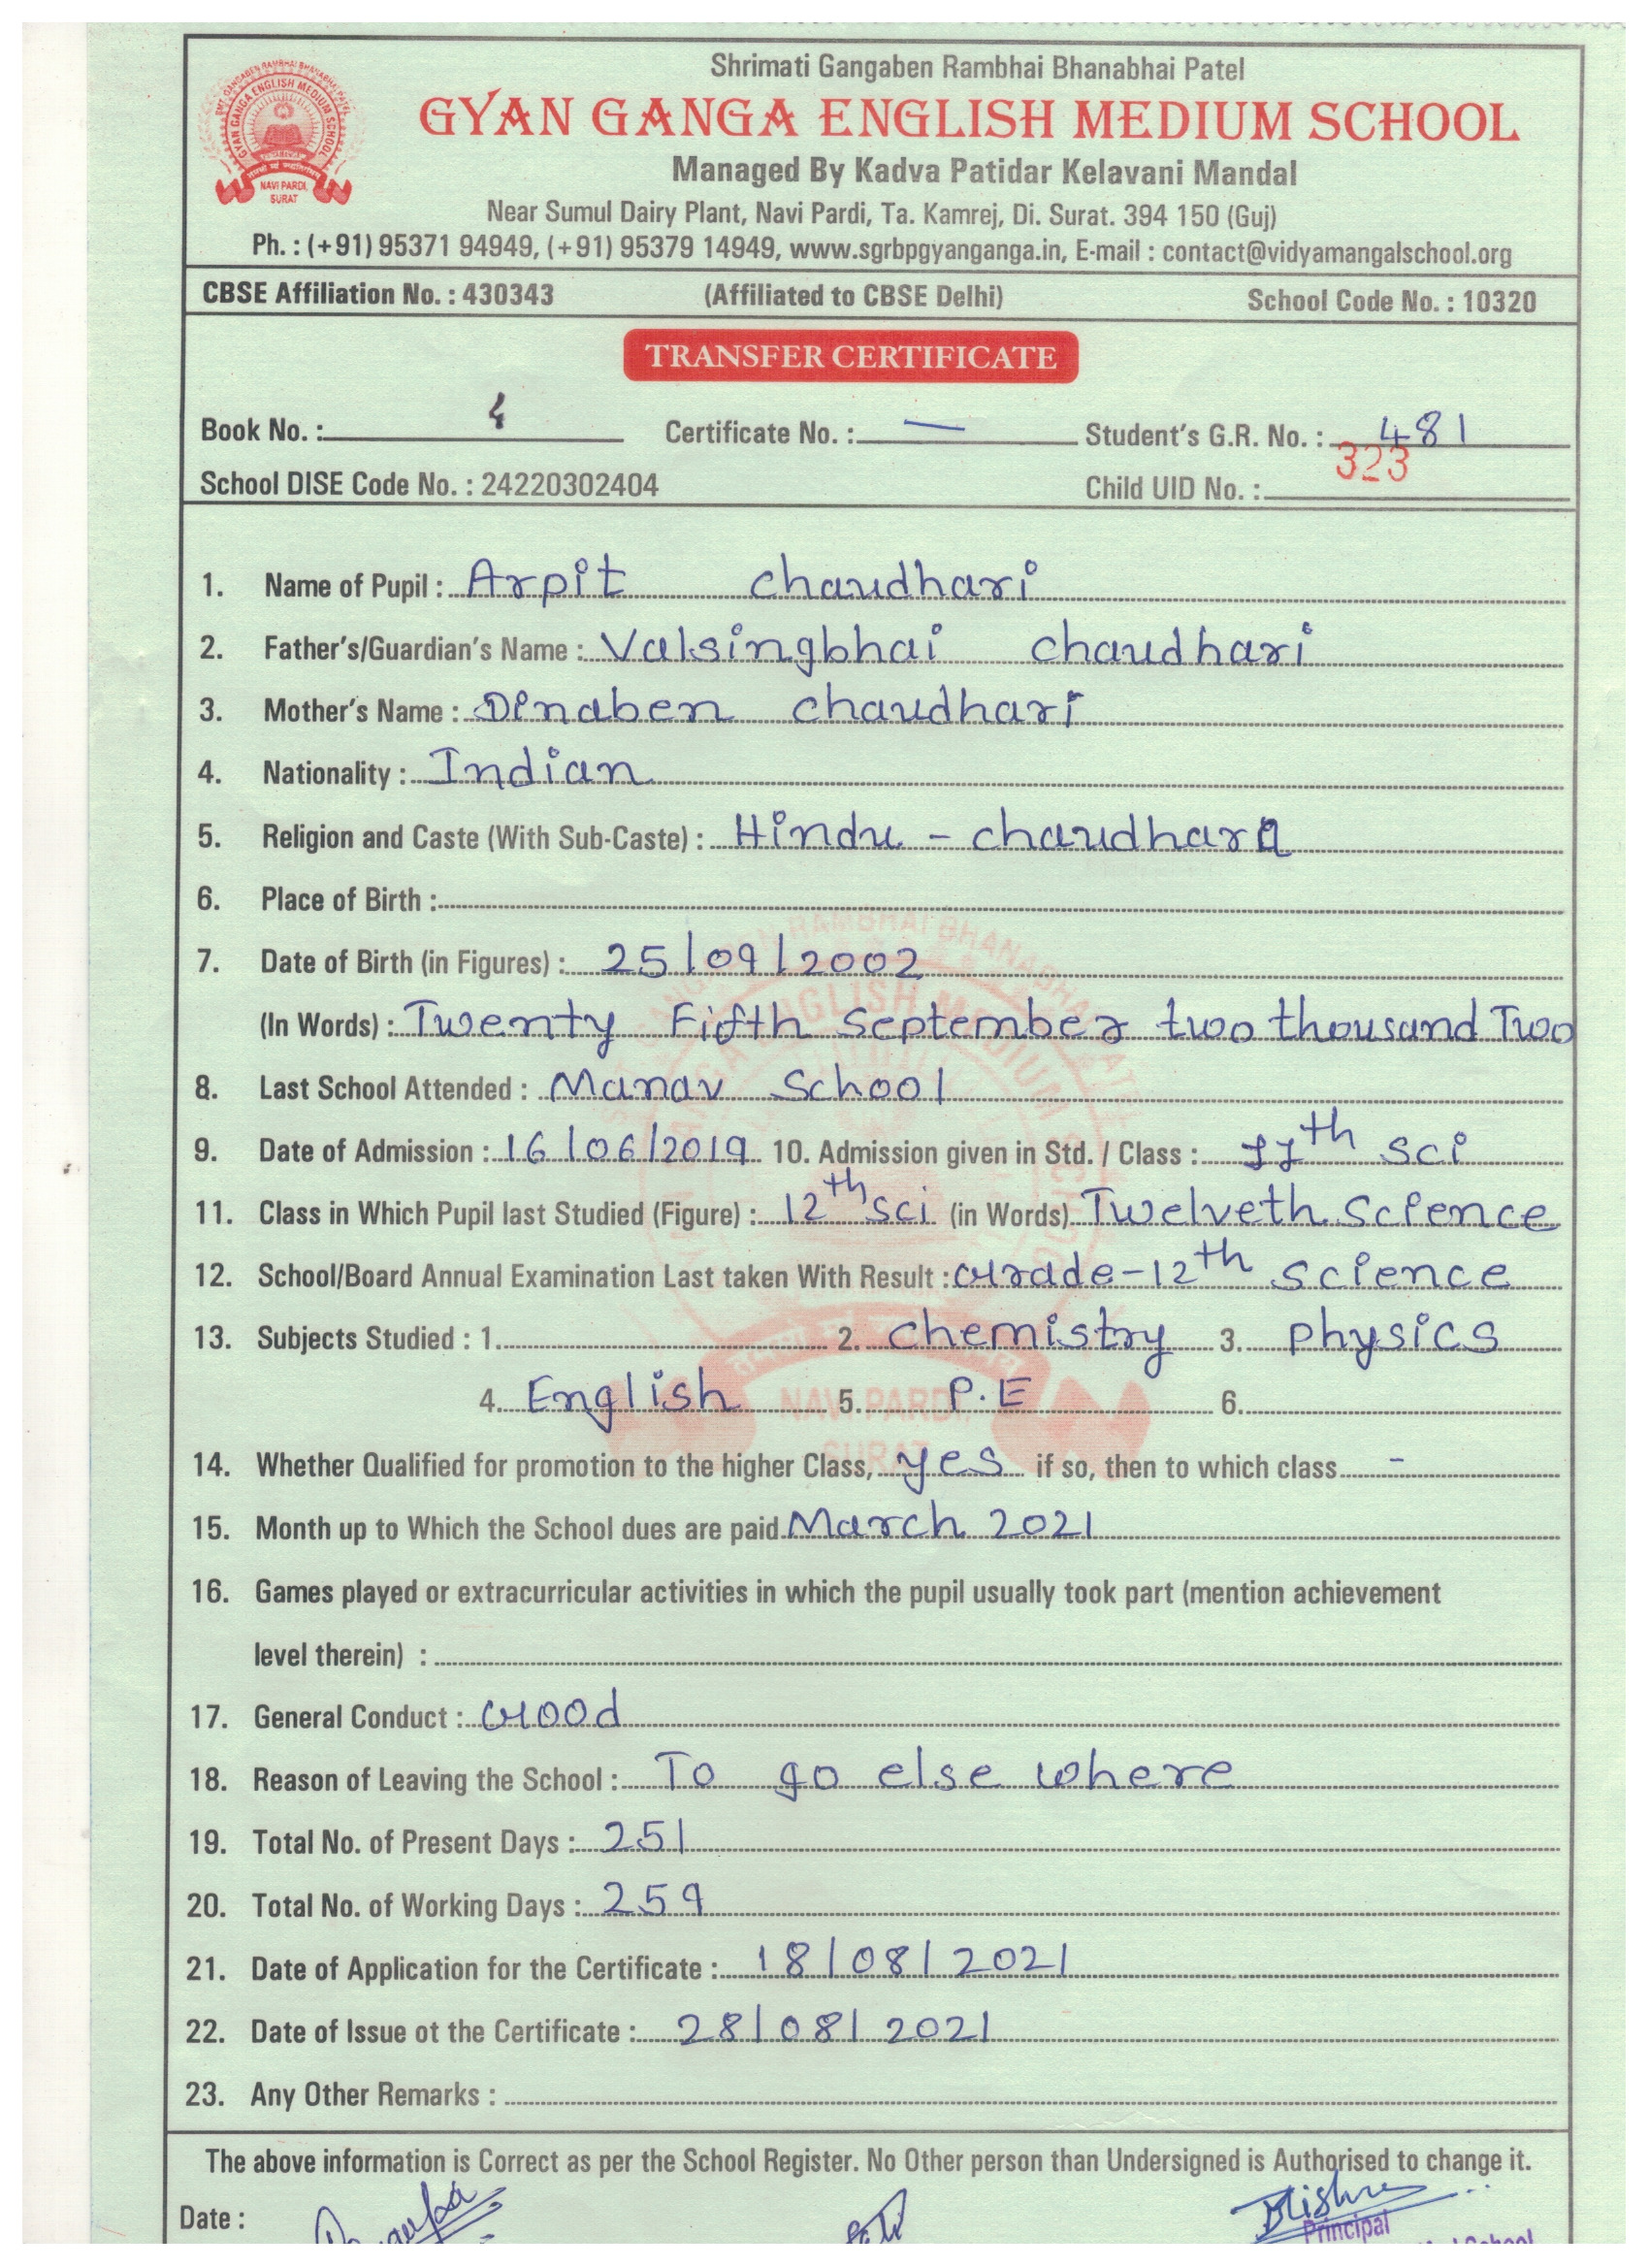 Shrimati Gangaben Rambhai Bhanabhai Patel
GYAN GANGA ENGLISH MEDIUM SCHOOL
Managed By Kadva Patidar Kelavani Mandal
Near Sumul Dairy Plant, Navi Pardi, Ta. Kamrej, Di. Surat. 394 150 (Guj)
Ph. : (+91) 95371 94949, (+91) 95379 14949, www.sgrbpgyanganga.in, E-mail : contact@vidyamangalschool.org
GYAN GANGA ENGLISH MEDIUM SCHOOL
NAVI PARDI,
SURAT
CBSE Affiliation No. : 430343 (Affiliated to CBSE Delhi) School Code No. : 10320
TRANSFER CERTIFICATE
Book No. : 4 Certificate No. : — Student's G.R. No. : 481
323
School DISE Code No. : 24220302404 Child UID No. :
1. Name of Pupil : Arpit chaudhari
2. Father's/Guardian's Name : Valsingbhai chaudhari
3. Mother's Name : Dinaben chaudhari
4. Nationality : Indian
5. Religion and Caste (With Sub-Caste) : Hindu - chaudhara
6. Place of Birth :
7. Date of Birth (in Figures) : 25/09/2002
(In Words) : Twenty Fifth September two thousand Two
8. Last School Attended : Manav School
9. Date of Admission : 16/06/2019 10. Admission given in Std. / Class : 11th sci
11. Class in Which Pupil last Studied (Figure) : 12th sci (in Words) Twelveth Science
12. School/Board Annual Examination Last taken With Result : Grade-12th science
13. Subjects Studied : 1. 2. chemistry 3. physics
4. English 5. P.E 6.
14. Whether Qualified for promotion to the higher Class, yes if so, then to which class -
15. Month up to Which the School dues are paid March 2021
16. Games played or extracurricular activities in which the pupil usually took part (mention achievement
level therein) :
17. General Conduct : Good
18. Reason of Leaving the School : To go else where
19. Total No. of Present Days : 251
20. Total No. of Working Days : 259
21. Date of Application for the Certificate : 18/08/2021
22. Date of Issue ot the Certificate : 28/08/2021
23. Any Other Remarks :
The above information is Correct as per the School Register. No Other person than Undersigned is Authorised to change it.
Date :
Principal